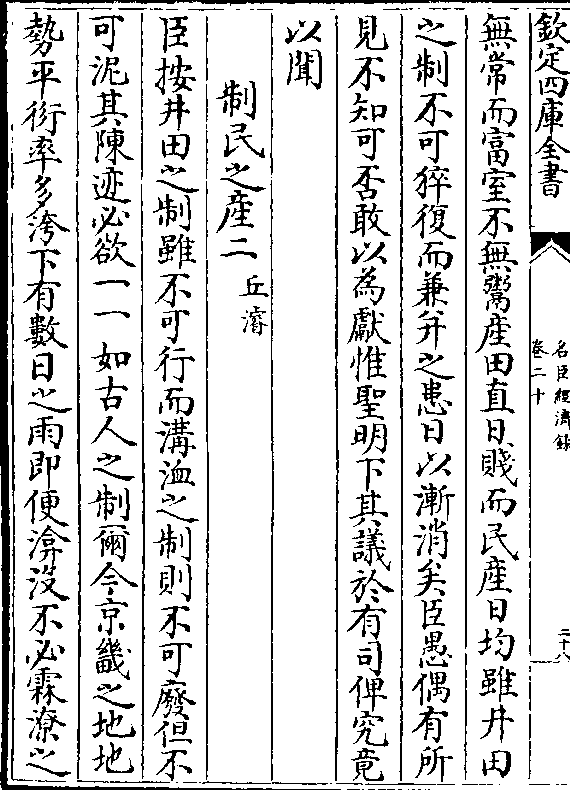 欽定四庫全書
名臣經濟錄
卷二十
二十八
無常而富室不無鬻産田直日賤而民産日均雖井田
之制不可猝復而兼并之患日以漸消矣臣愚偶有所
見不知可否敢以為獻惟聖明下其議於有司俾究竟
以聞
制民之産二 丘濬
臣按井田之制雖不可行而溝洫之制則不可廢但不
可泥其陳迹必欲一一如古人之制爾今京畿之地地
勢平衍率多洿下有數日之雨即便渰没不必霖潦之